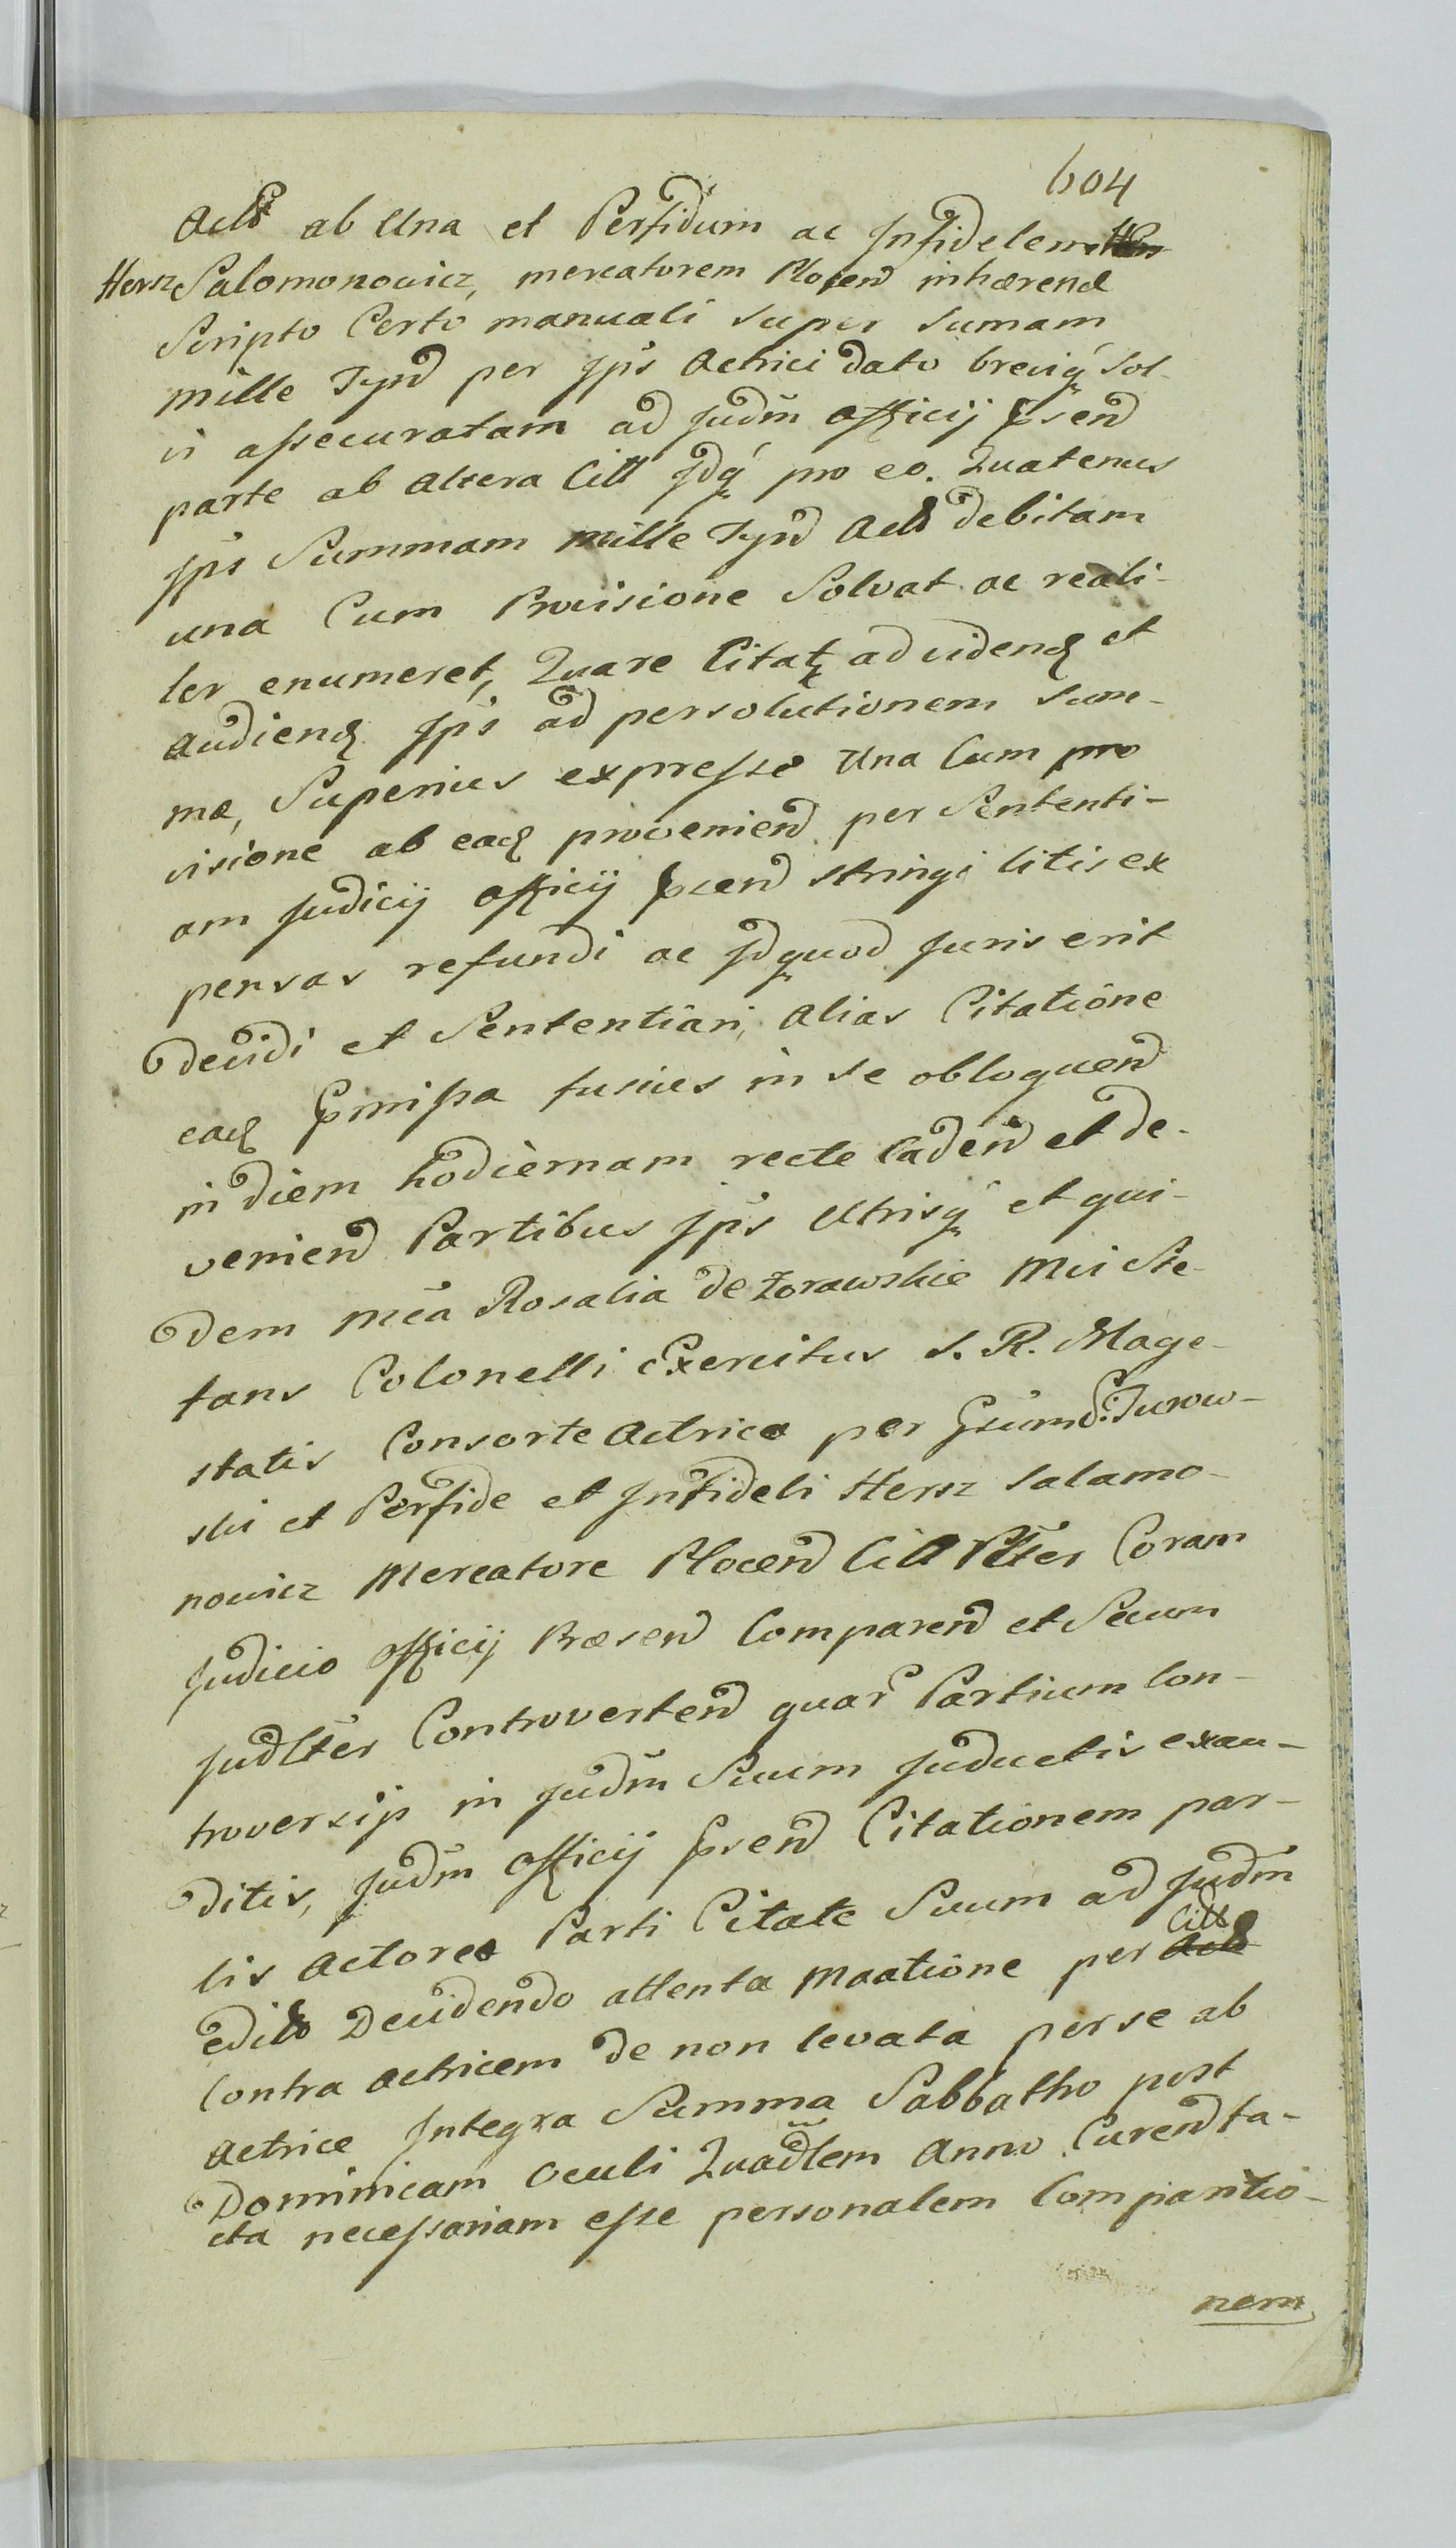 604
Acto ab Una et Perfidum ac Infidelem
Hersz Salomonowicz, mercatorem Plocen inhærend
Scripto Certo manuali super sumam
mille Tynf per Ips Actrici dato breviq sol-
vi assecuratam ad Judm Officij Psen
parte ab altera Citt Idq pro eo. Quatenus
Ips Summam mille Tynf Acto debitam
una Cum Provisione Solvat ac reali-
ter enumeret, Quare Citat ad videnđ et
audienđ Ips ad persolutionem sum-
mæ, Superius expresse Una Cum pro
visione ab eađ provenien per Sententi-
am Judicij Officij Pscen stringi litis ex
pensas refundi ac Id quod Juris erit
Decidi et Sententiari, alias Citatione
eađ Pmissa fusius in se obloquen
in diem hodiernam recte Caden et de-
venien Partibus Ips Utrisq et qui-
dem Mca Rosalia de Zorawskie Mci Ste-
fans Colonelli Exercitus S. R. Mage-
statis Consorte Actrice per Gsum D: Turow-
ski et Perfide et Infideli Hersz Salamo-
nowicz Mercatore Plocen Citt Ptter Coram
Judicio Officij Præsen Comparen et Secum
Judlter Controverten quar Partium Con-
troversijs in Judm Suum Inductis exau-
ditis, Judm Officij Psen Citationem par-
tis Actorea Parti Citate Suum ad Judm
edito Decidendo attenta Maatione per Citt
Contra Actricem de non levata per se ab
Actrice Integra Summa Sabbatho post
Dominicam Oculi Quadlem Anno Curen fa-
cta necessariam esse personalem Comparitio-
nem